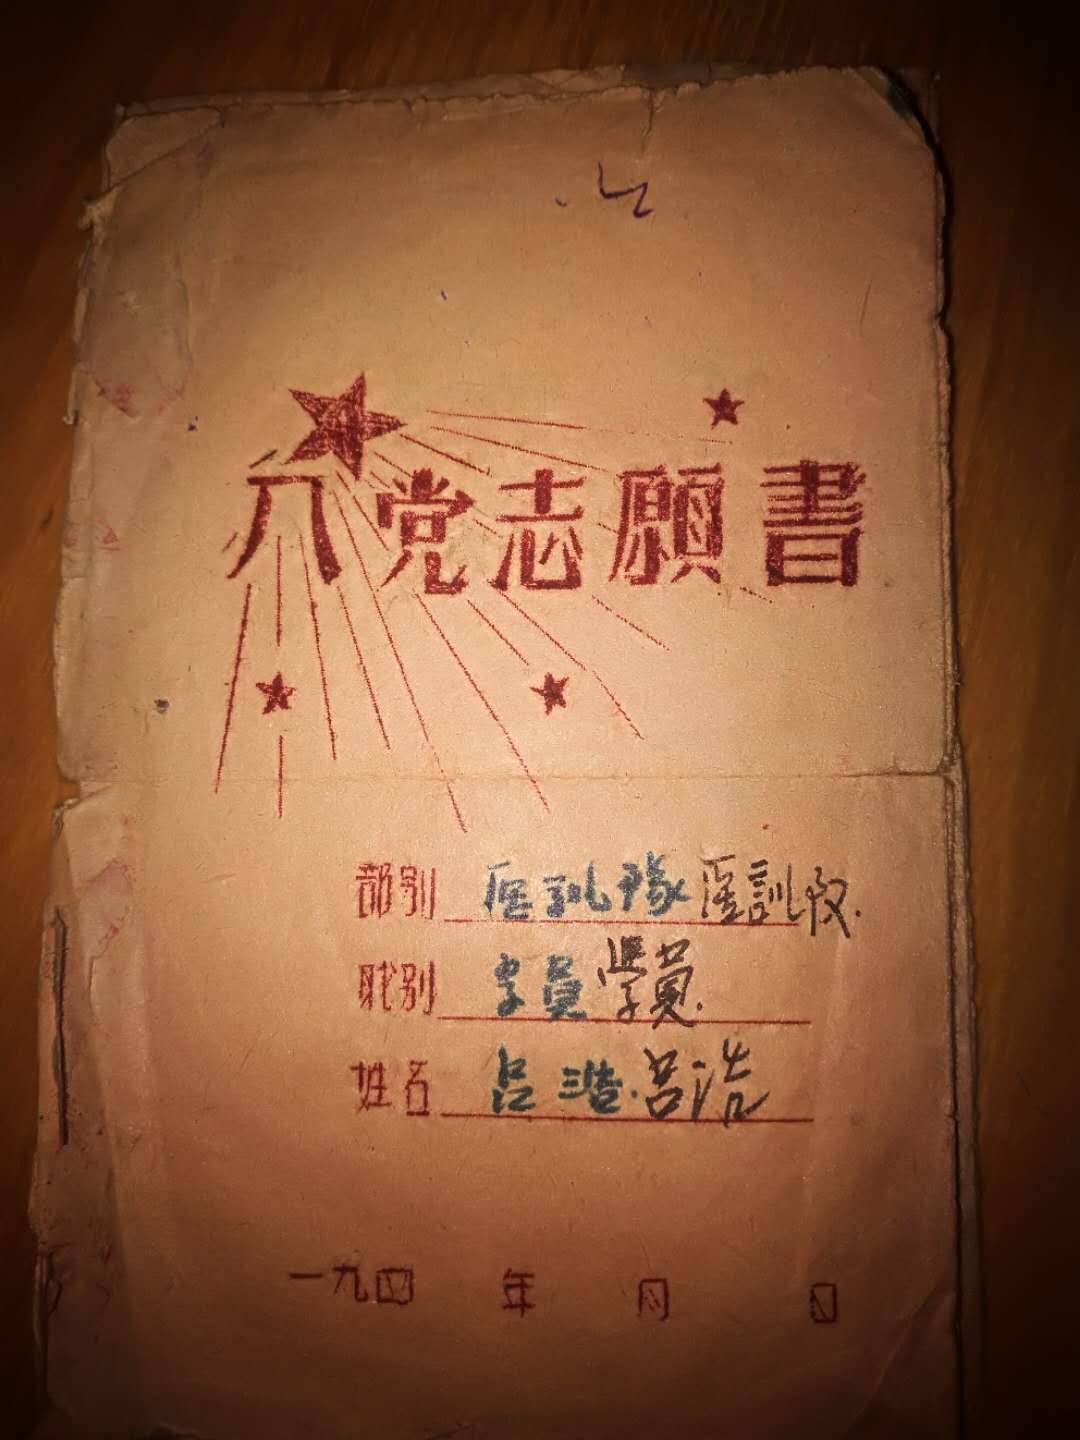 入党志願書
部别 医訓隊 医訓队.
职别 学員 學員.
姓名 吕浩. 吕浩
一九四 年 月 日